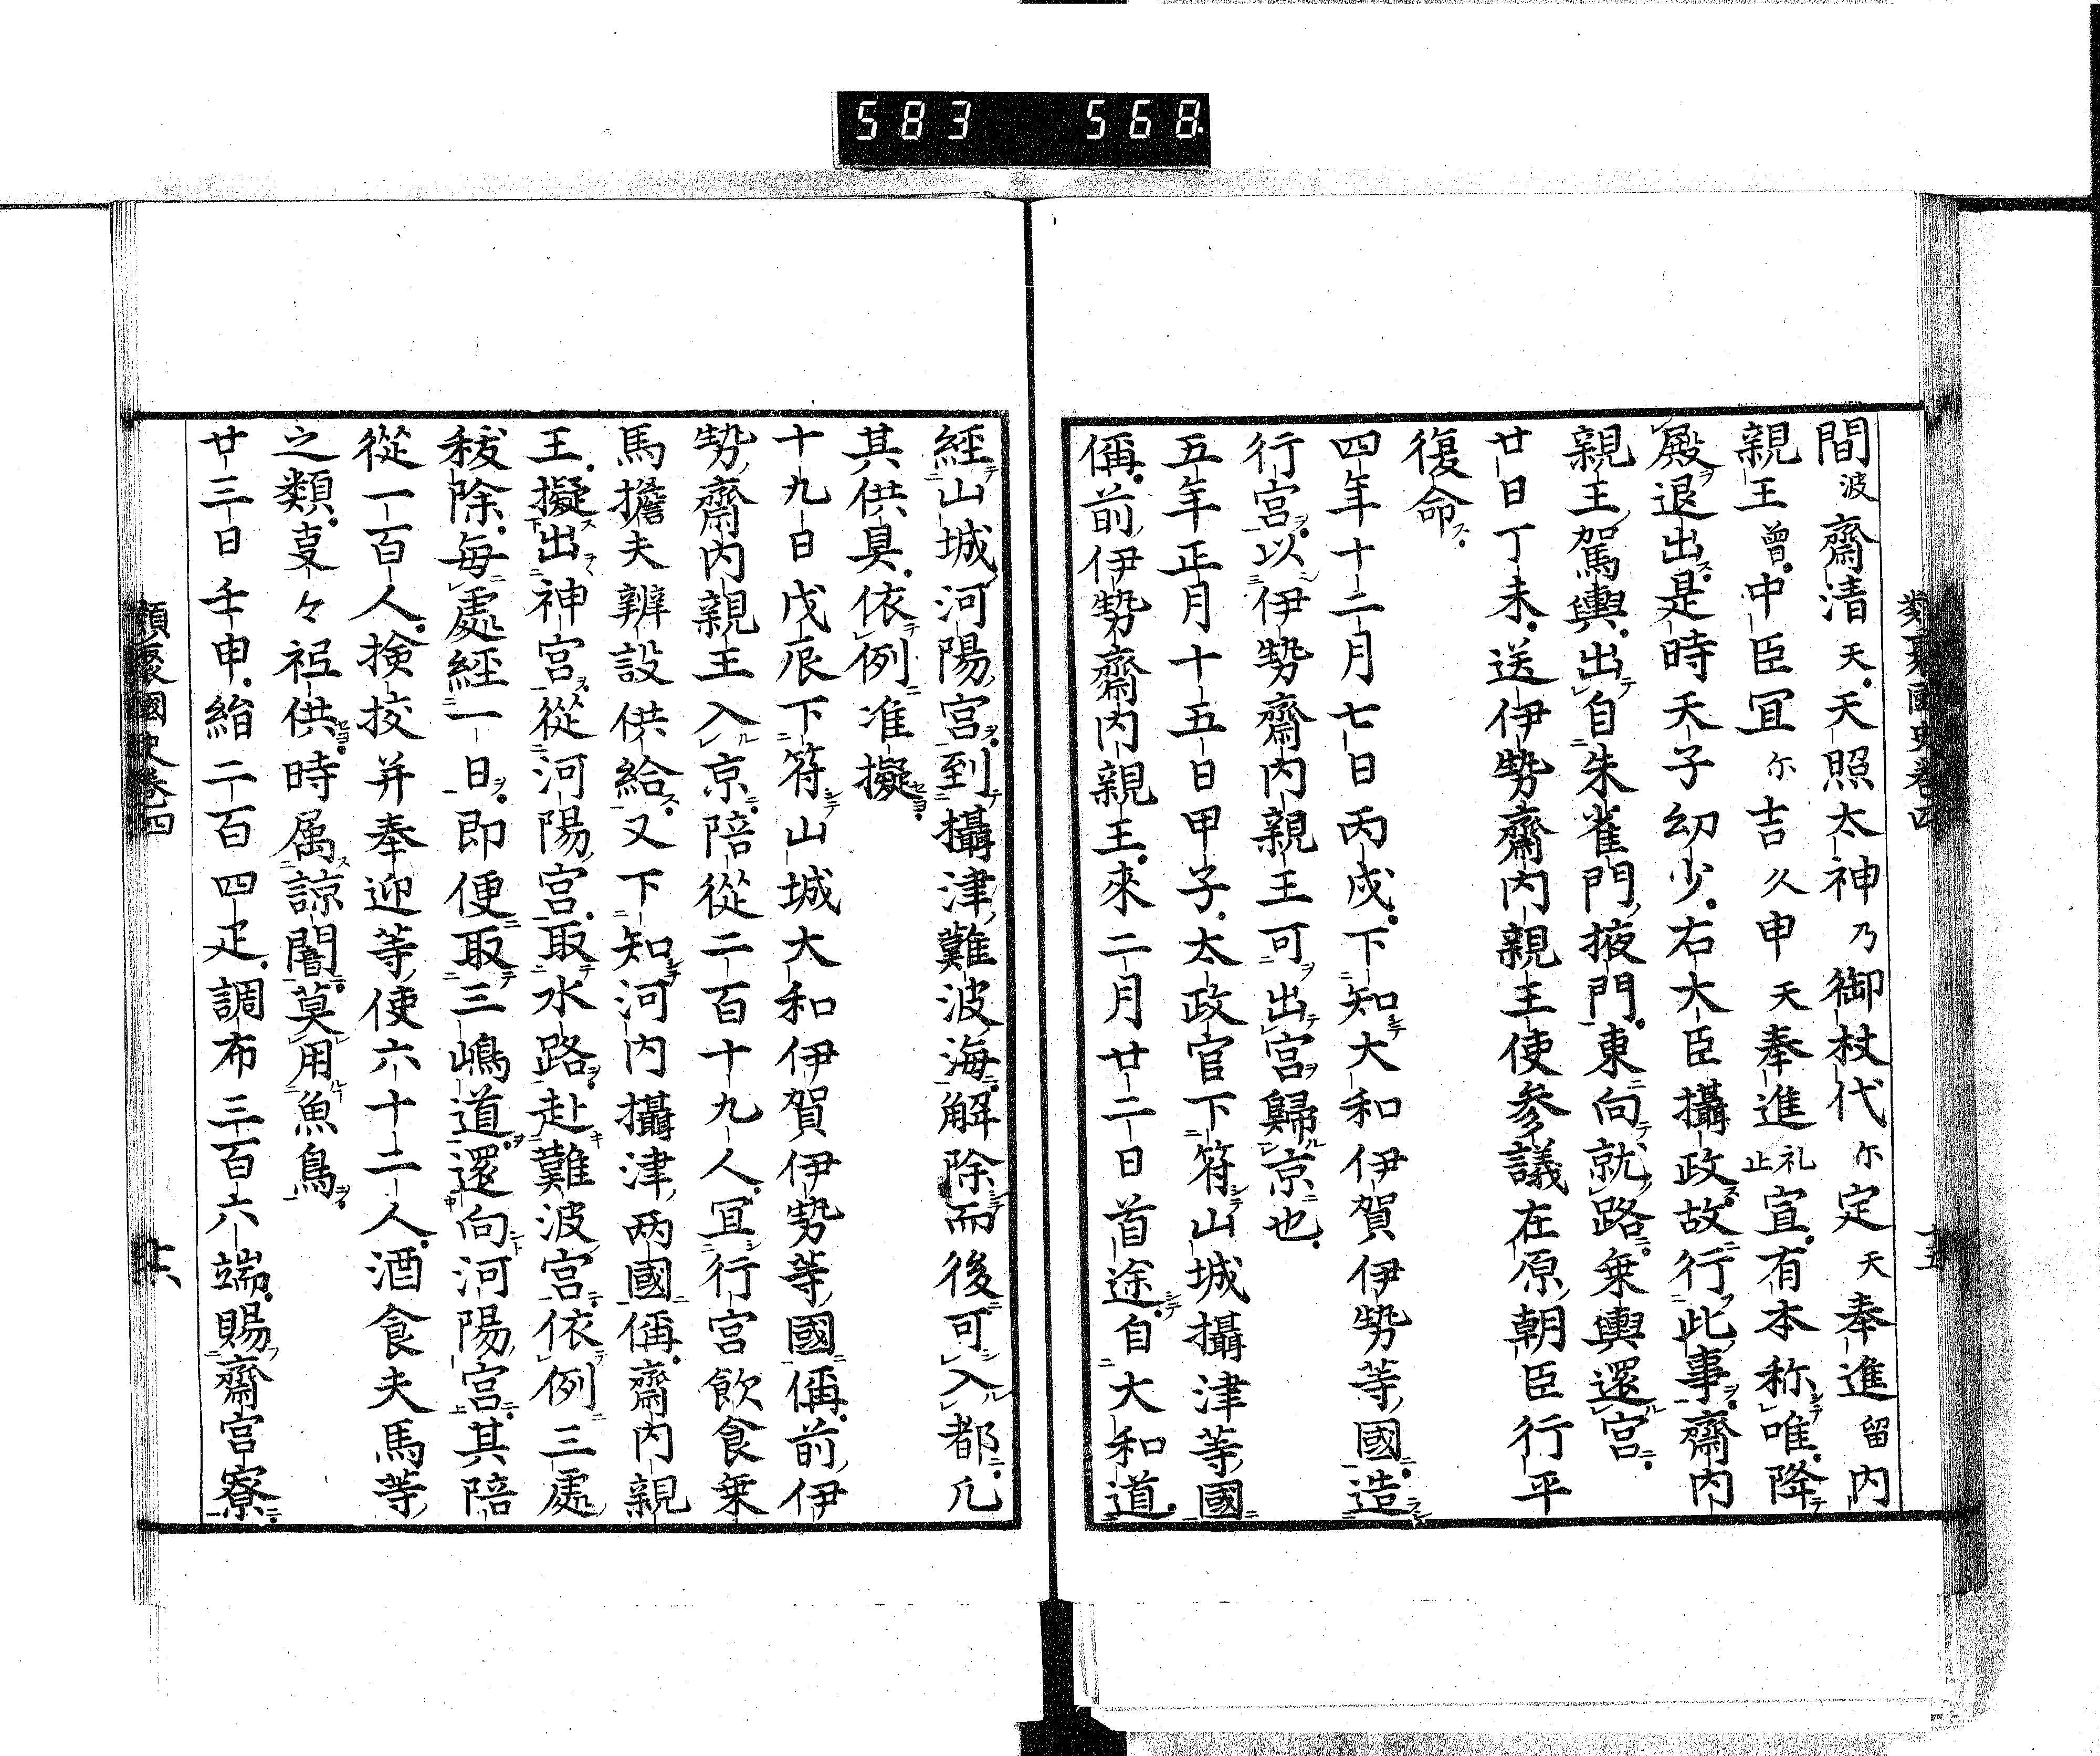 583 568
類聚國史卷四 十五
間波齋清天天照太神乃御杖代尓定天奉進留内
親王曾中臣冝尓吉久申天奉進礼止宣有本称唯降
殿退出是時天子幼少右大臣攝政故行此事齋内
親王駕輿出自朱雀門掖門東向就路乗輿還宮
廿日丁未送伊勢齋内親王使參議在原朝臣行平
復命
四年十二月七日丙戌下知大和伊賀伊勢等國造
行宮以伊勢齋内親王可出宮歸京也
五年正月十五日甲子太政官下符山城攝津等國
偁前伊勢齋内親王來二月廿二日首途自大和道
經山城河陽宮到攝津難波海解除而後可入都凢
其供具依例准擬
十九日戊辰下符山城大和伊賀伊勢等國偁前伊
勢齋内親王入京陪從二百十九人冝行宮飲食乗
馬擔夫辨設供給又下知河内攝津两國偁齋内親
王擬出神宮從河陽宮取水路赴難波宮依例三處
秡除毎處經一日即便取三嶋道還向河陽宮其陪
從一百人揀挍并奉迎等使六十二人酒食夫馬等
之類㕝々祗供時属諒闇莫用魚鳥
廿三日壬申絁二百四疋調布三百六端賜齋宮寮
類聚國史卷四 十六